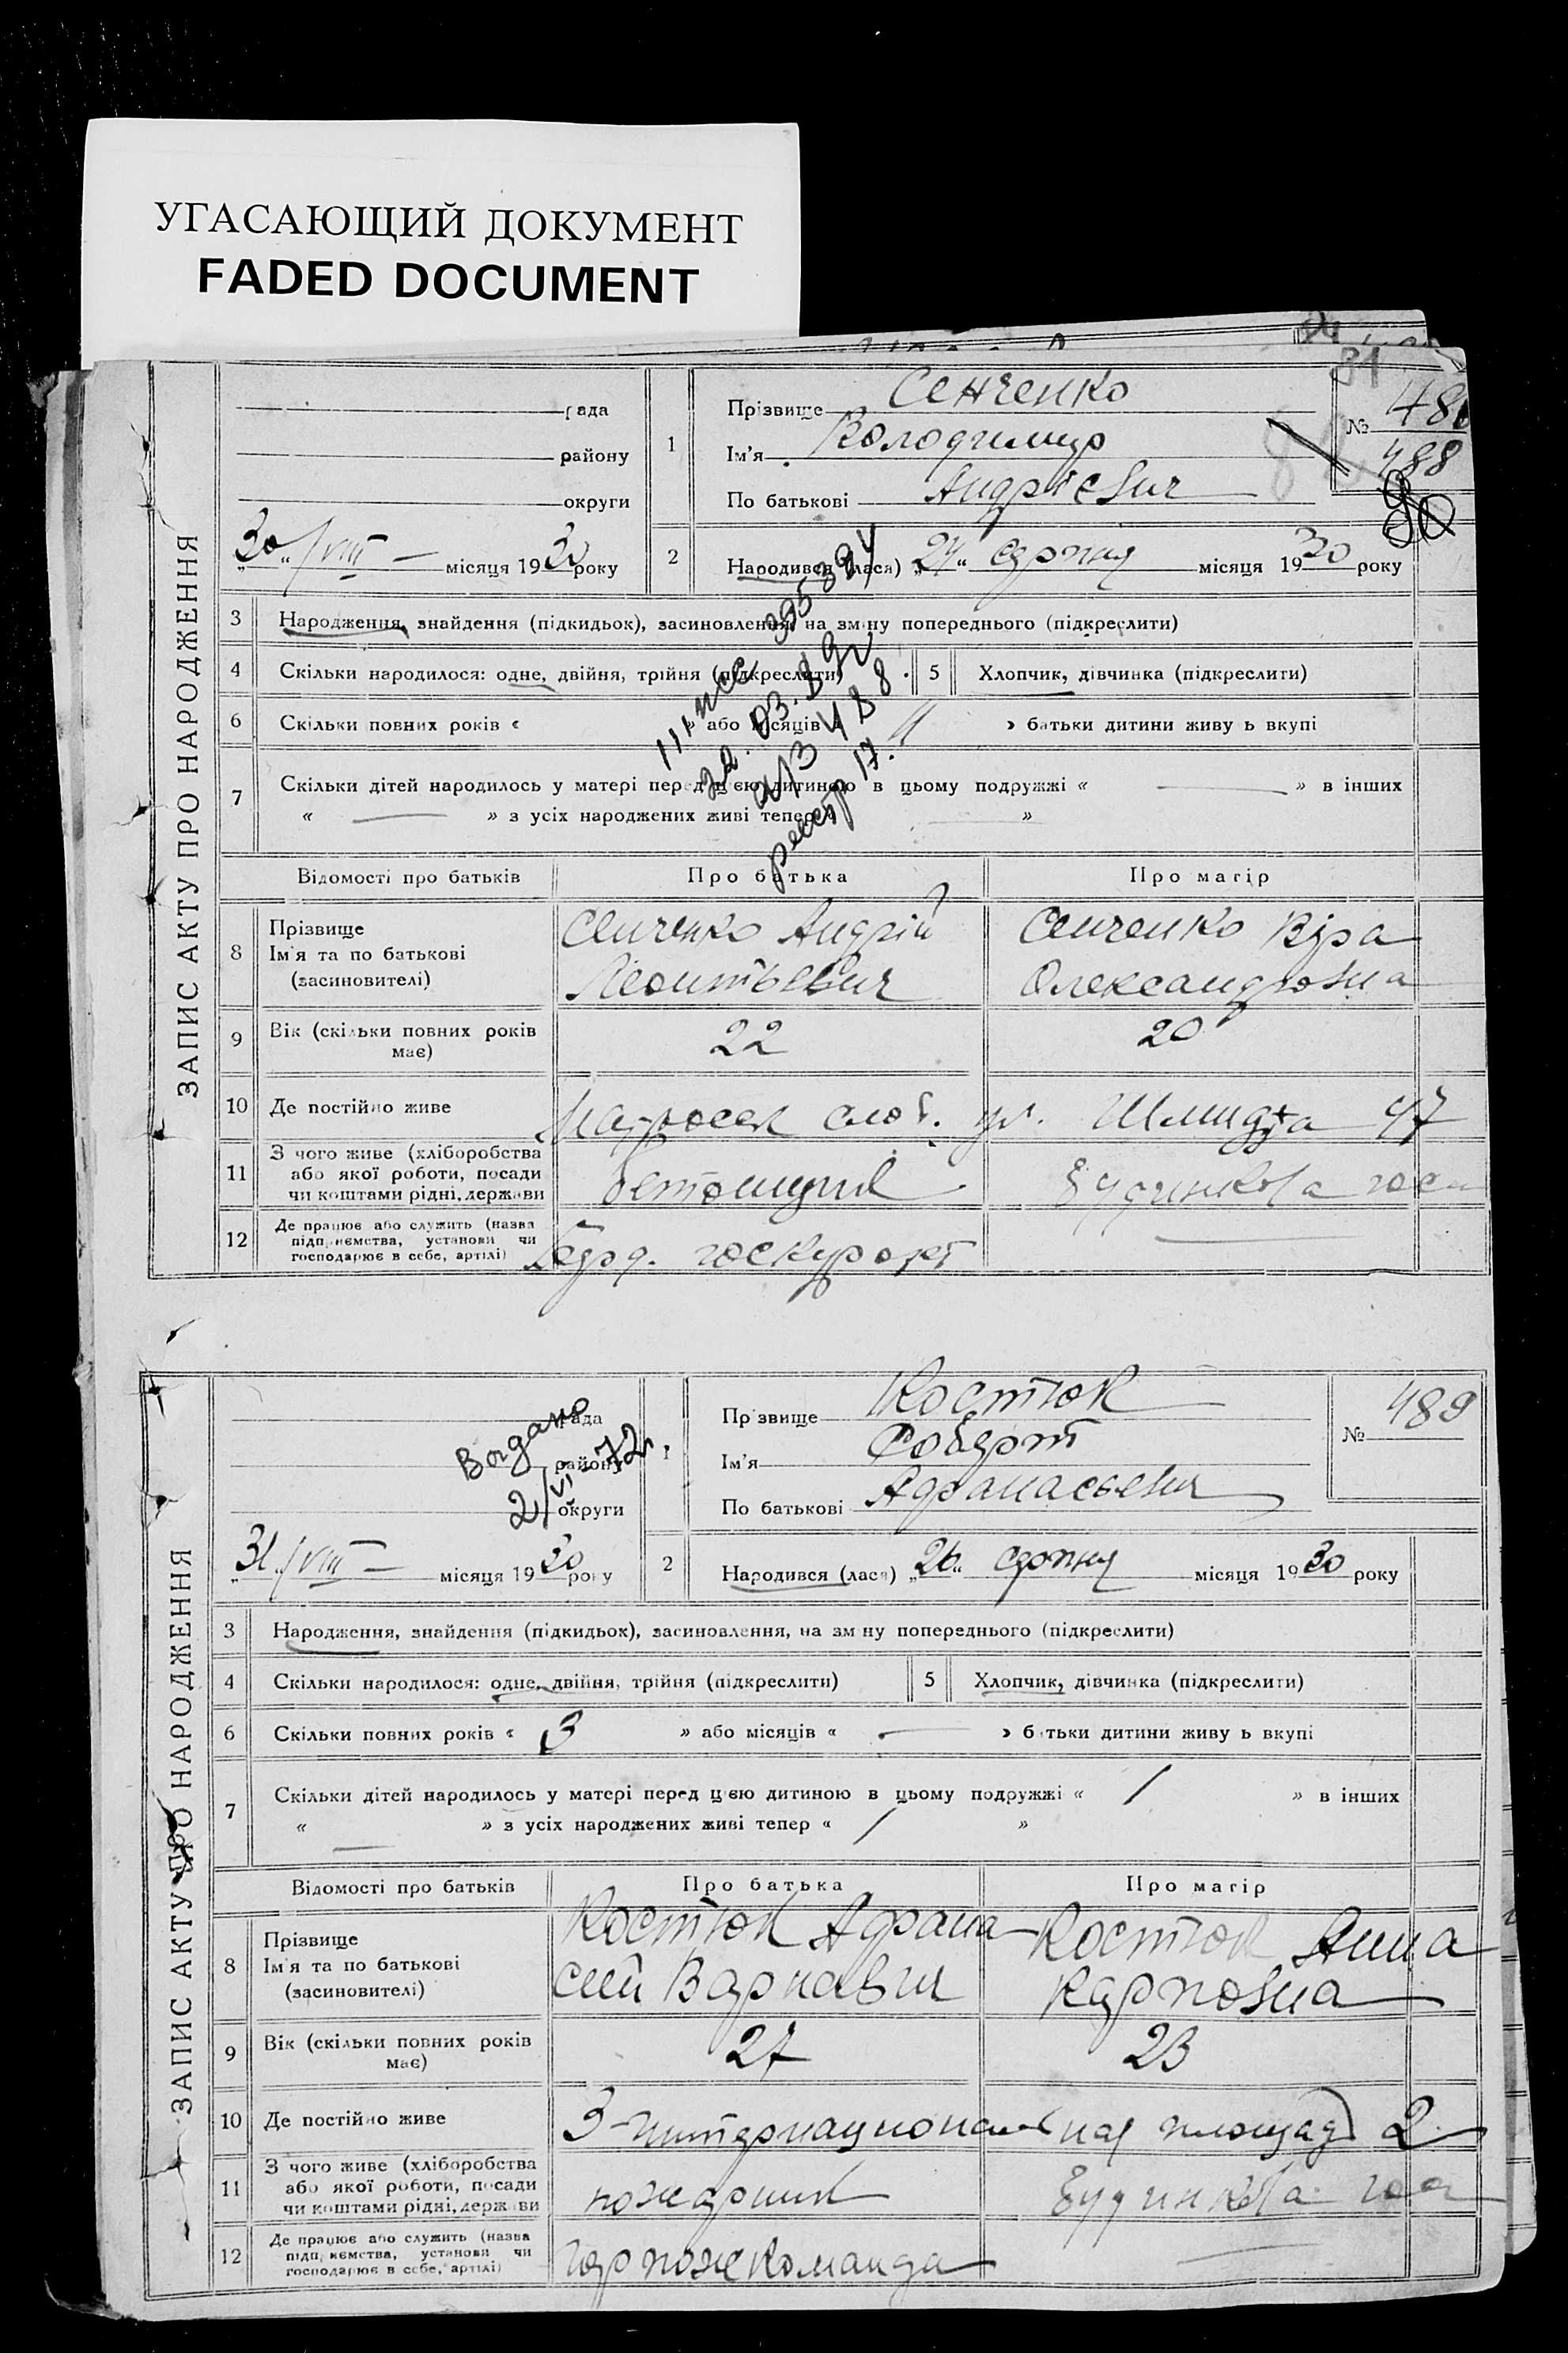 УГАСАЮЩИЙ ДОКУМЕНТ
FADED DOCUMENT
81
ЗАПИС АКТУ ПРО НАРОДЖЕННЯ
рада
району
округи
30 / VIII – місяця 1930 року
1 Прізвище Сенченко
Ім'я Володимир
По батькові Андрієвич
№ 488
2 Народився (лася) „24“ серпня місяця 1930 року
3 Народження, знайдення (підкидьок), засиновлення, на зміну попереднього (підкреслити)
4 Скільки народилося: одне, двійня, трійня (підкреслити) 5 Хлопчик, дівчинка (підкреслити)
6 Скільки повних років « » або місяців « 11 » батьки дитини живуть вкупі
7 Скільки дітей народилось у матері перед цією дитиною в цьому подружжі « — » в інших
« — » з усіх народжених живі тепер « — »
22.03.89г
а/з 488
реестр 17.
Відомості про батьків Про батька Про матір
8 Прізвище Ім'я та по батькові (засиновителі) Сенченко Андрій Сенченко Віра
Леонтьевич Олександровна
9 Вік (скільки повних років має) 22 20
10 Де постійно живе Матросск слоб. ул. Шмидта 47
11 З чого живе (хліборобства або якої роботи, посади чи коштами рідні, держави бетонщик будинкова госп
12 Де працює або служить (назва підприємства, установи чи господарює в себе, артілі) Берд. госкурорт —
ЗАПИС АКТУ ПРО НАРОДЖЕННЯ
рада
району
округи
Выдано
2/VI-72г.
31 / VIII – місяця 1930 року
1 Прізвище Костюк
Ім'я Роберт
По батькові Афанасьевич
№ 489
2 Народився (лася) „26“ серпня місяця 1930 року
3 Народження, знайдення (підкидьок), засиновлення, на зміну попереднього (підкреслити)
4 Скільки народилося: одне, двійня, трійня (підкреслити) 5 Хлопчик, дівчинка (підкреслити)
6 Скільки повних років « 3 » або місяців « — » батьки дитини живуть вкупі
7 Скільки дітей народилось у матері перед цією дитиною в цьому подружжі « 1 » в інших
« — » з усіх народжених живі тепер « 1 »
Відомості про батьків Про батька Про матір
8 Прізвище Ім'я та по батькові (засиновителі) Костюк Афана Костюк Анна
сий Варнавич Карповна
9 Вік (скільки повних років має) 27 23
10 Де постійно живе 3-интернациональная площадь 2
11 З чого живе (хліборобства або якої роботи, посади чи коштами рідні, держави пожарник будинкова гос
12 Де працює або служить (назва підприємства, установи чи господарює в себе, артілі) горпожкоманда —